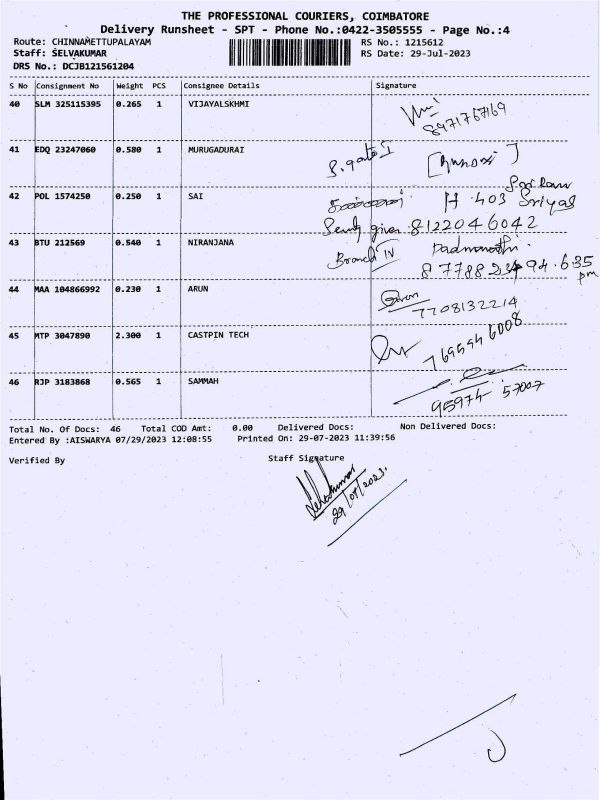 THE PROFESSIONAL COURIERS, COIMBATORE
Delivery Runsheet - SPT - Phone No.:0422-3505555 - Page No.:4
Route: CHINNAMETTUPALAYAM RS No.: 1215612
Staff: SELVAKUMAR RS Date: 29-Jul-2023
DRS No.: DCJB121561204
S No Consignment No Weight PCS Consignee Details Signature
40 SLM 325115395 0.265 1 VIJAYALSKHMI
8971767169
41 EDQ 23247060 0.580 1 MURUGADURAI
42 POL 1574250 0.250 1 SAI H 403
8122046042
43 BTU 212569 0.540 1 NIRANJANA Branch
6.35 pm
44 MAA 104866992 0.230 1 ARUN
7708132214
45 MTP 3047890 2.300 1 CASTPIN TECH
7695946008
46 RJP 3183868 0.565 1 SAMMAH
95974 57007
Total No. Of Docs: 46 Total COD Amt: 0.00 Delivered Docs: Non Delivered Docs:
Entered By :AISWARYA 07/29/2023 12:08:55 Printed On: 29-07-2023 11:39:56
Verified By Staff Signature
29/07/2023.